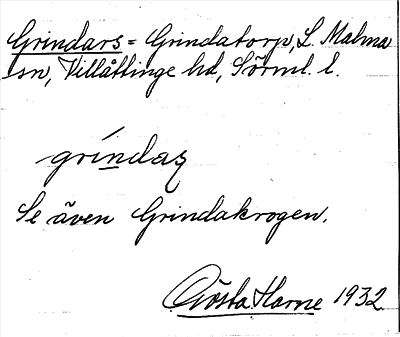 Grindars = Grindatorp, L. Malma
sn, Villåttinge hd, Sörml. l.
gríndaʂ
Se även Grindakrogen.
Gösta Harne 1932